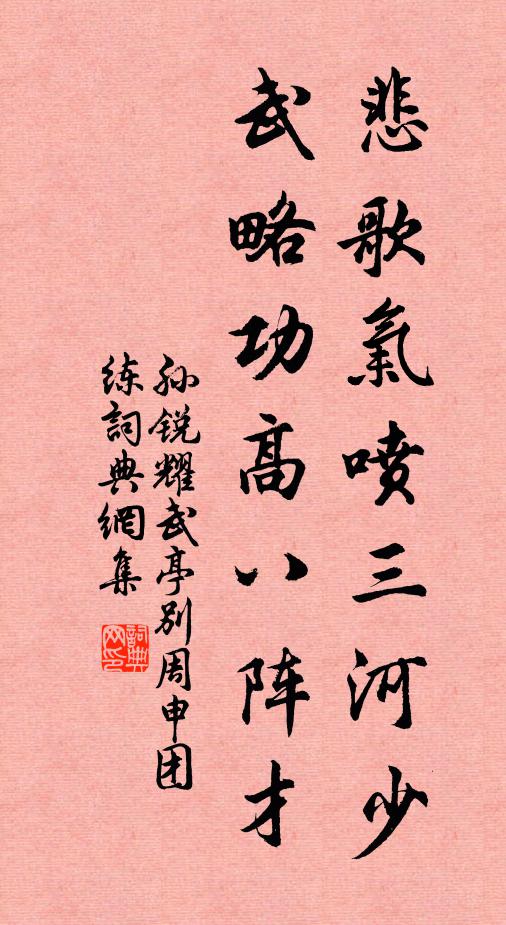 悲歌氣喷三河少
武略功高八阵才
孙锐耀武亭别周申团
练詞典網集
詞典
网印